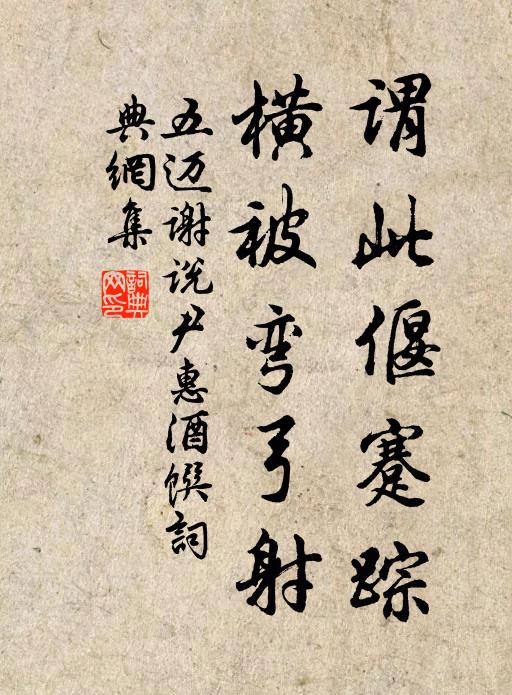 谓此偃蹇踪
横被弯弓射
五迈谢说尹惠酒馔詞
典網集
詞典网印